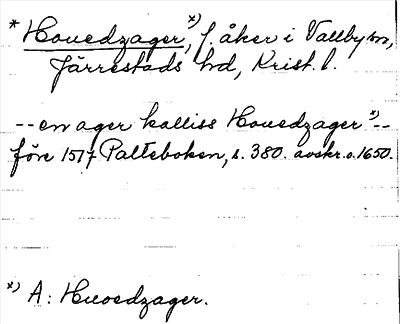 * Hovedzager, *) f. åker i Vallby sn,
Järrestads hd, Krist. l.
-- en ager kalliss Hovedzager *) --
före 1517 Palteboken, s. 380. avskr. o. 1650.
*) A: Huoedzager.